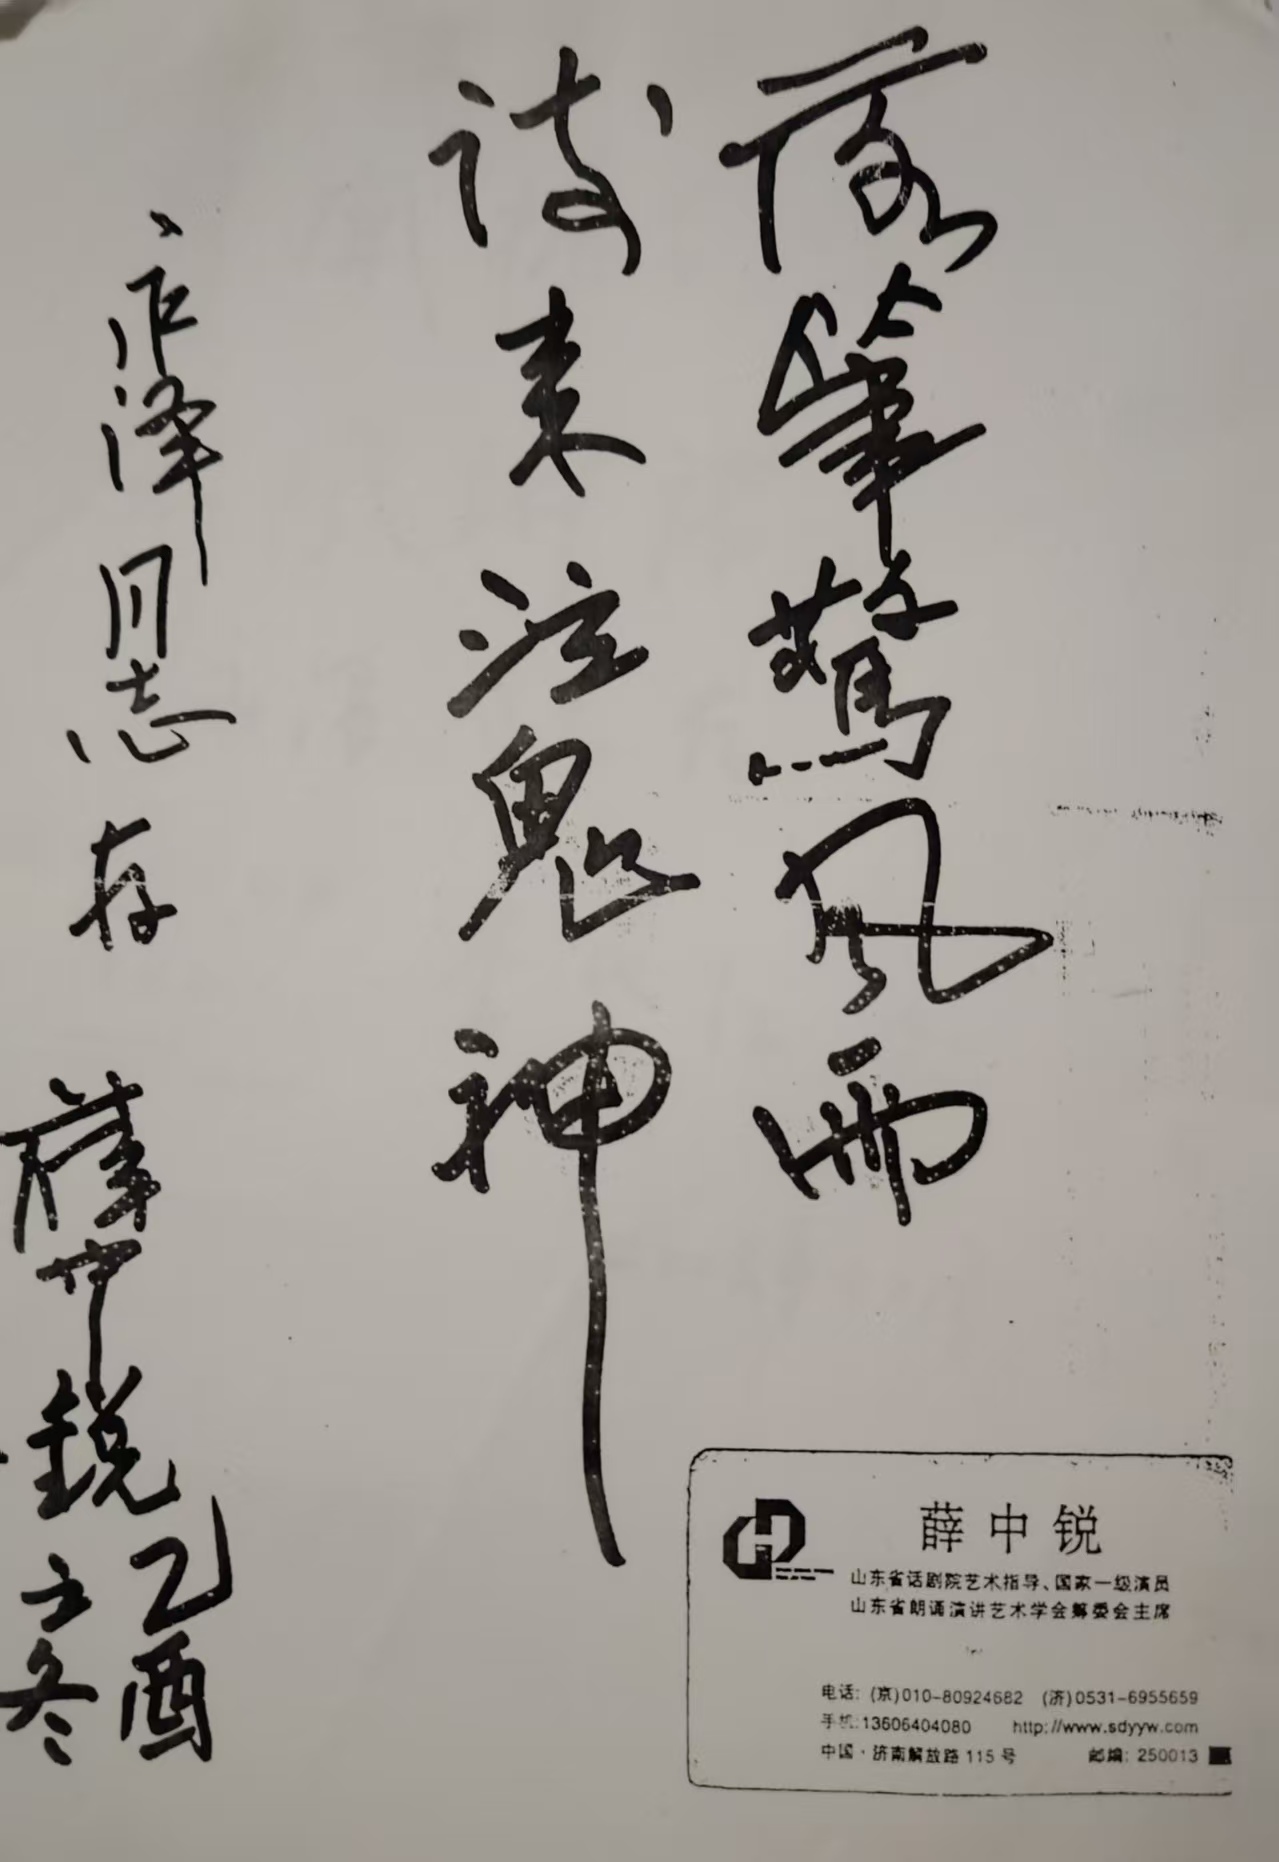 落筆驚风雨
诗来泣鬼神
泽同志 存
薛中锐
乙酉
立冬
薛中锐
山东省话剧院艺术指导、国家一级演员
山东省朗诵演讲艺术学会筹委会主席
电话: (京)010-80924682 (济)0531-6955659
手机:13606404080 http://www.sdyyw.com
中国·济南解放路115号 邮编: 250013